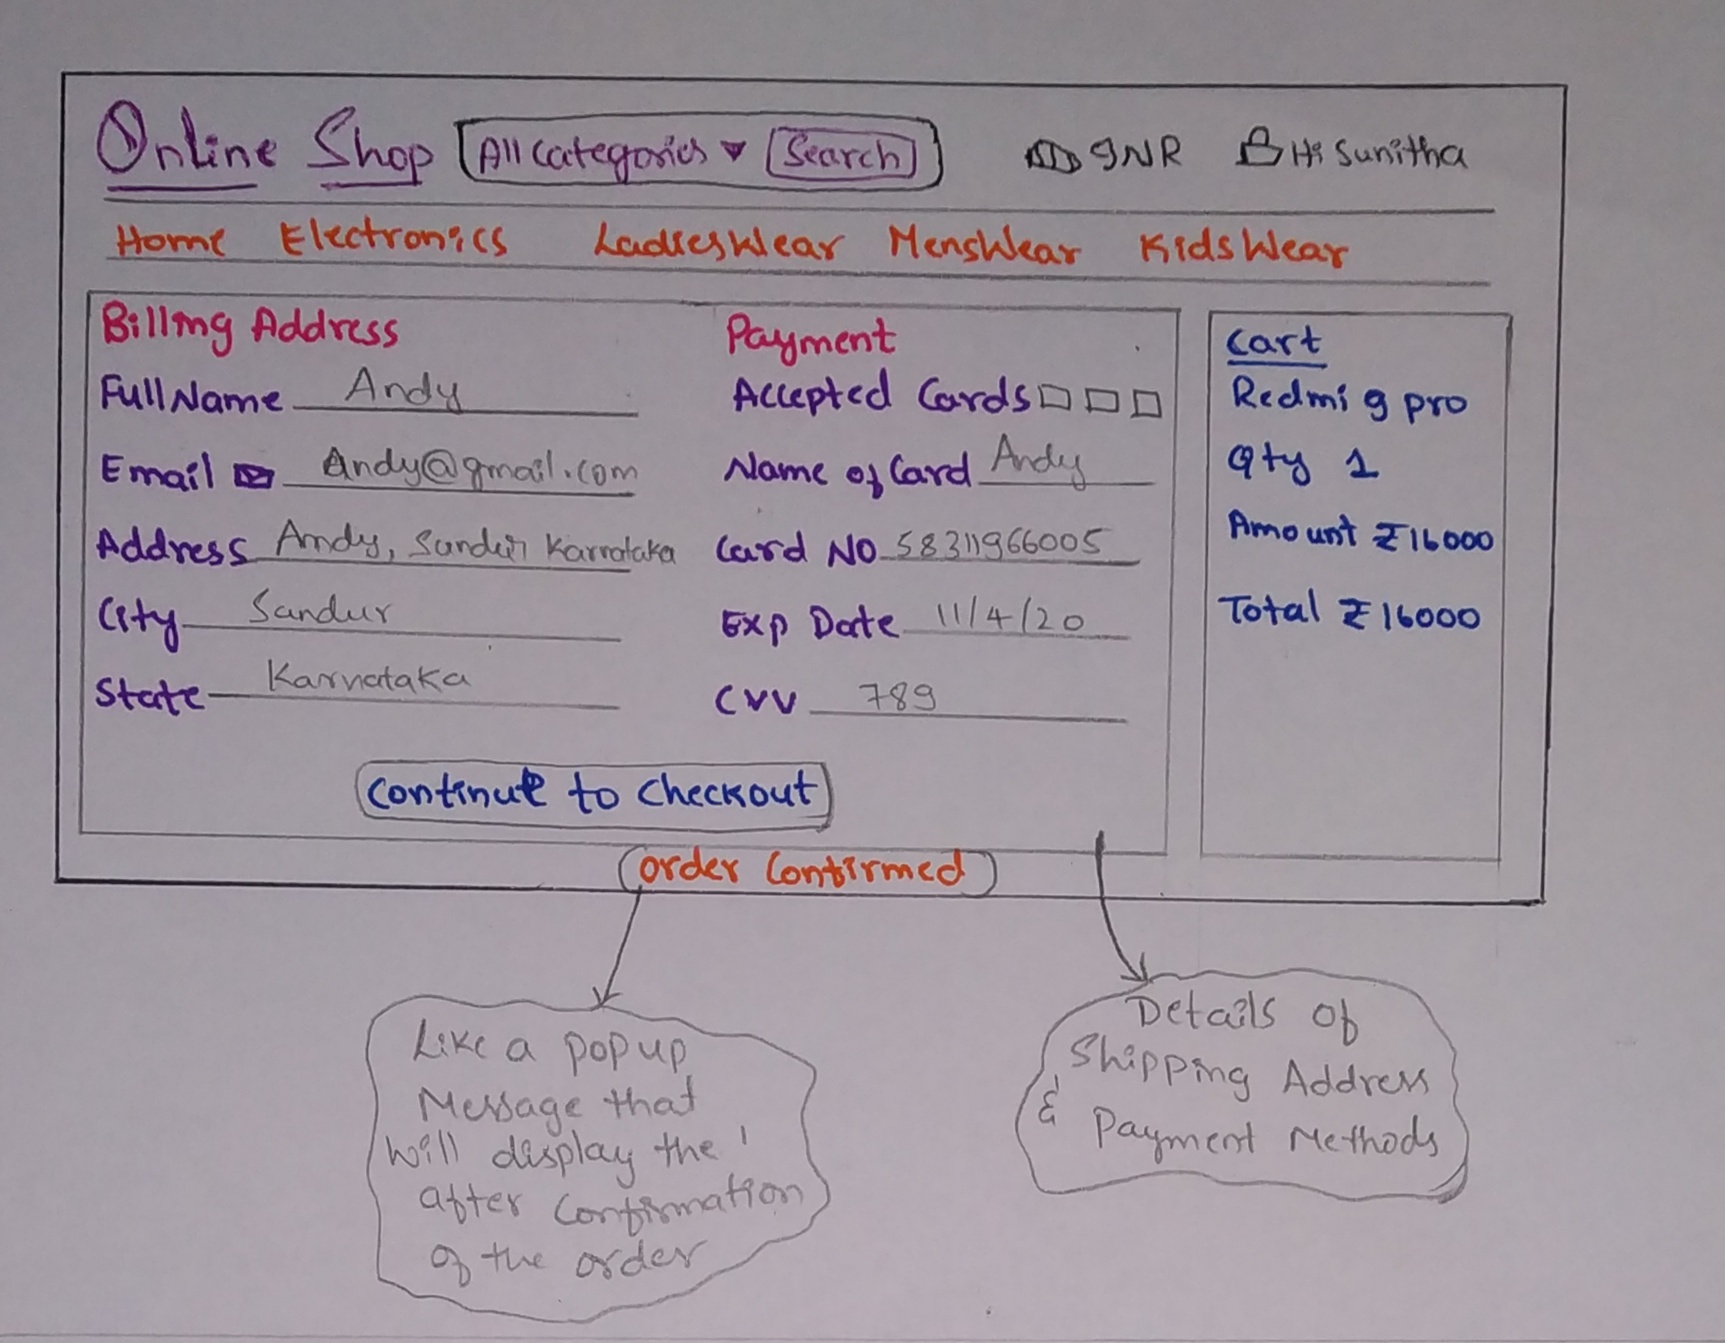 Online Shop All Categories Search INR Hi Sunitha
Home Electronics LadiesWear MensWear KidsWear
Billing Address
Full Name Andy
Email Andy@gmail.com
Address Andy, Sandur Karnataka
City Sandur
State Karnataka
Payment
Accepted Cards
Name of Card Andy
Card NO 58311966005
Exp Date 11/4/20
CVV 789
Continue to Checkout
Cart
Redmi 9 pro
Qty 1
Amount ₹16000
Total ₹16000
Order Confirmed
Like a popup
Message that
will display the
after Confirmation
of the order
Details of
Shipping Address
& Payment Methods